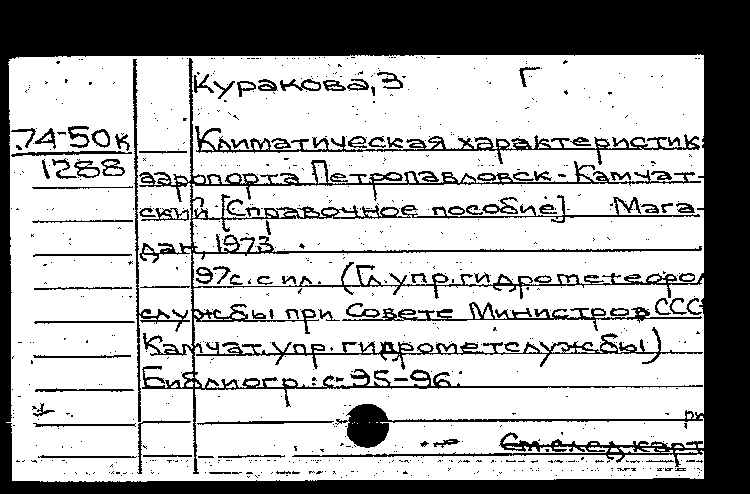 Куракова, З Г
74-50к Климатическая характеристик
1288 аэропорта Петропавловск-Камчат-
ский [Справочное пособие]. Мага-
дан, 1973.
97с. с ил. (Гл. упр. гидрометеорол
службы при Совете Министров СССР
Камчат. упр. гидрометслужбы)
Библиогр.: с. 95-96.
См. след. карт